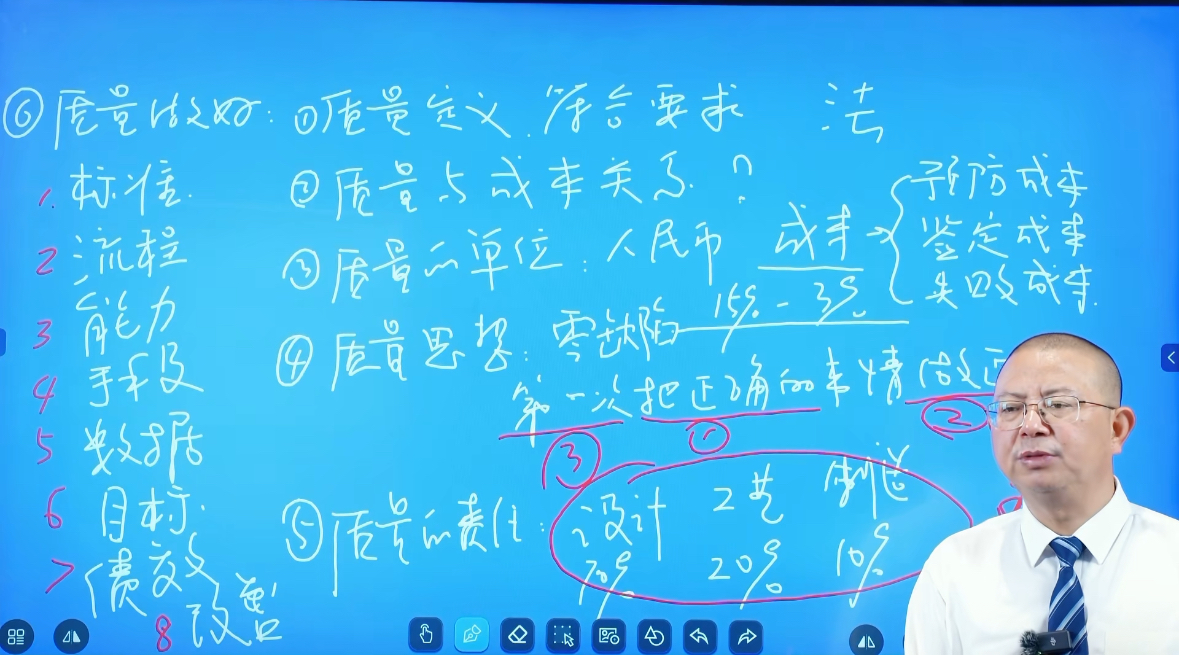 ⑥ 质量做好: ①质量定义. 符合要求 法
1. 标准.
2 流程
3 能力
4 手段
5 数据
6 目标.
7 绩效
8 改善
② 质量与成本关系?
③ 质量的单位: 人民币 成本→
预防成本
鉴定成本
失败成本.
④ 质量思想: 零缺陷
第一次把正确的事情做正
③ ① ②
⑤ 质量的责任: 设计 工艺 制造
70% 20% 10%